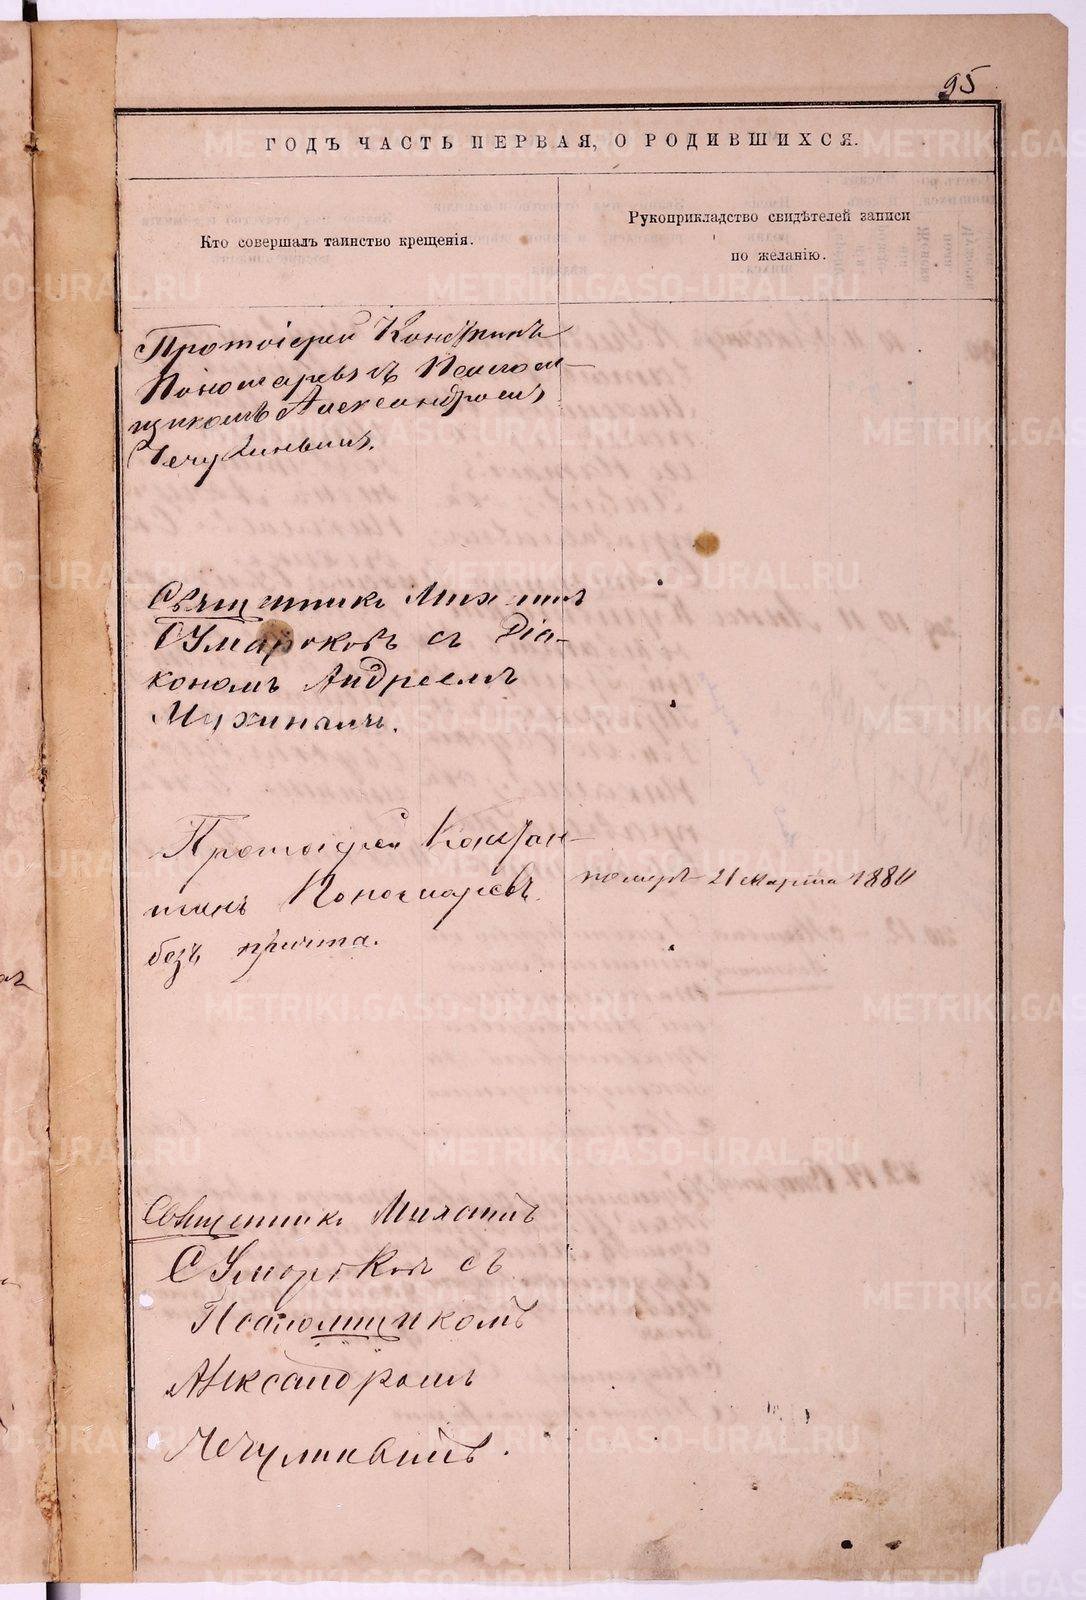 95
ГОДЪ ЧАСТЬ ПЕРВАЯ, О РОДИВШИХСЯ.
Кто совершалъ таинство крещенія.
Рукоприкладство свидѣтелей записи
по желанію.
Протоіерей
Пономаревъ съ Псалом-
щикомъ Александромъ
Чечулинымъ.
Священникъ Михаилъ
Сумароковъ съ Діа-
кономъ Андреемъ
Мухинымъ.
Протоіерей Констан-
тинъ Пономаревъ
безъ причта.
померъ 21 марта 1880
Священникъ Михаилъ
Сумароковъ съ
Псаломщикомъ
Александромъ
Чечулинымъ.
METRIKI.GASO-URAL.RU